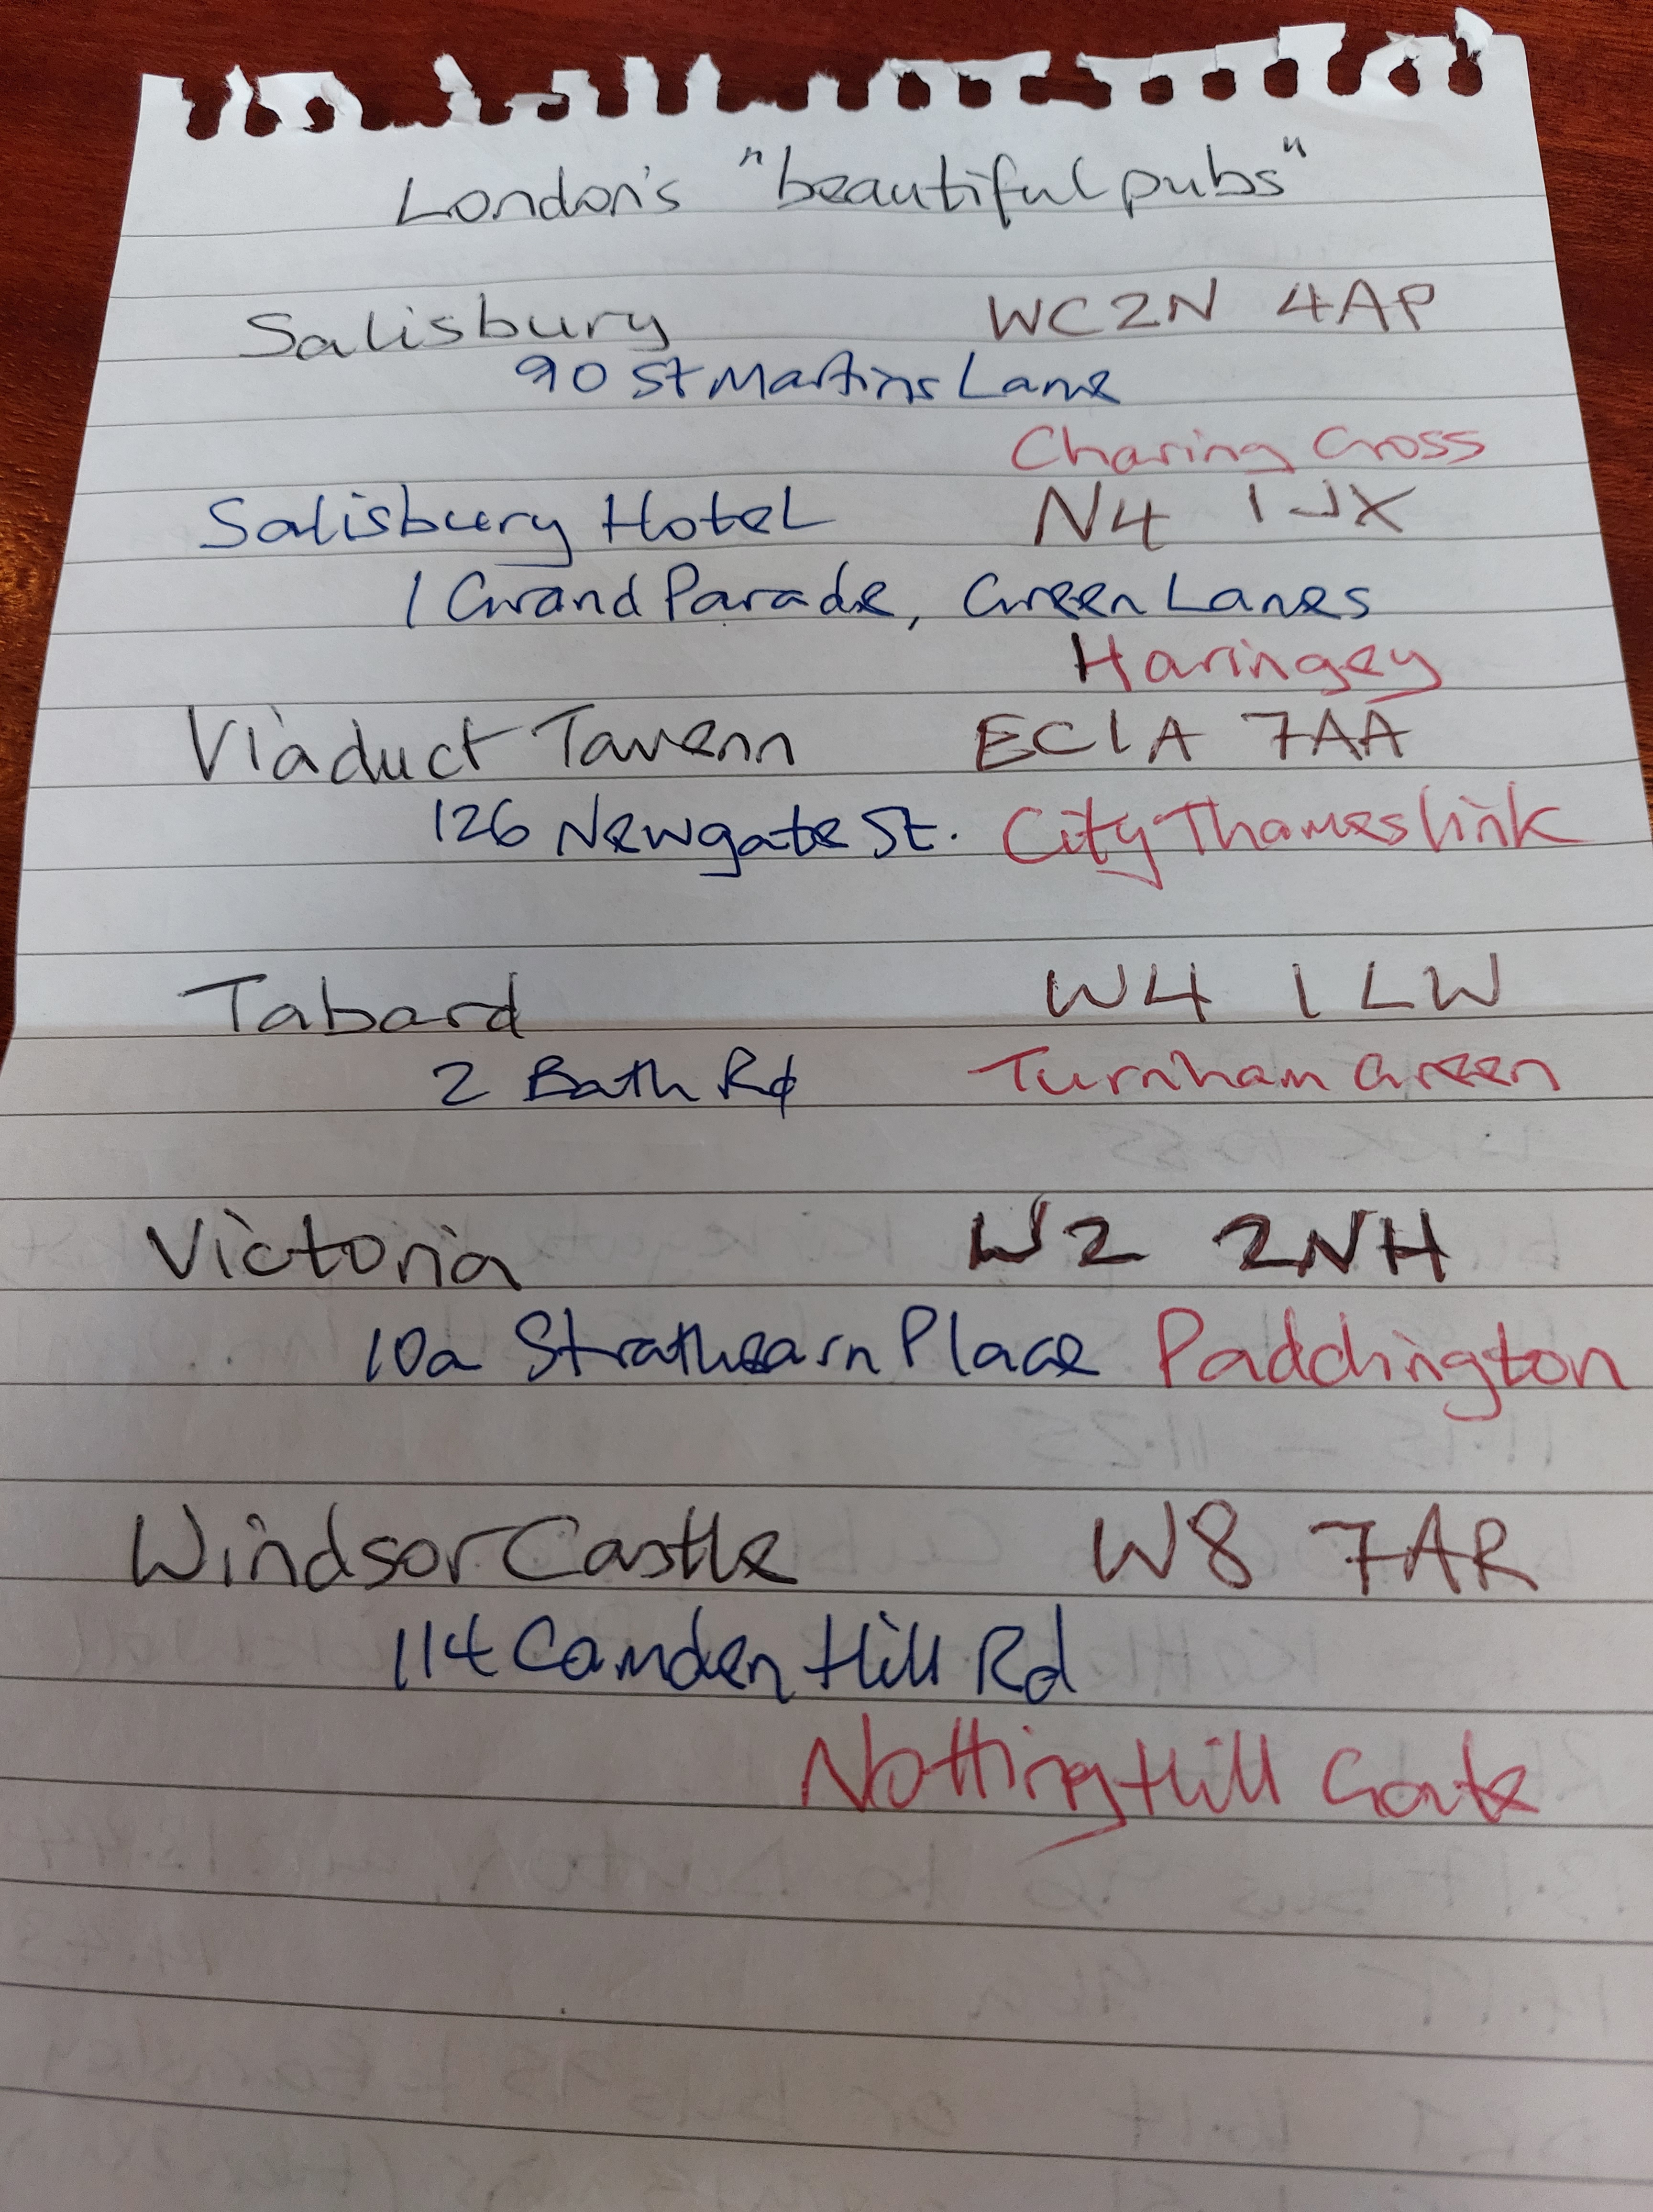 London's "beautiful pubs"
Salisbury WC2N 4AP
90 St Martins Lane
Charing Cross
Salisbury Hotel N4 1JX
1 Grand Parade, Green Lanes
Haringey
Viaduct Tavern EC1A 7AA
126 Newgate St. City Thameslink
Tabard W4 1LW
2 Bath Rd Turnham Green
Victoria W2 2NH
10a Strathearn Place Paddington
Windsor Castle W8 7AR
114 Camden Hill Rd
Notting Hill Gate